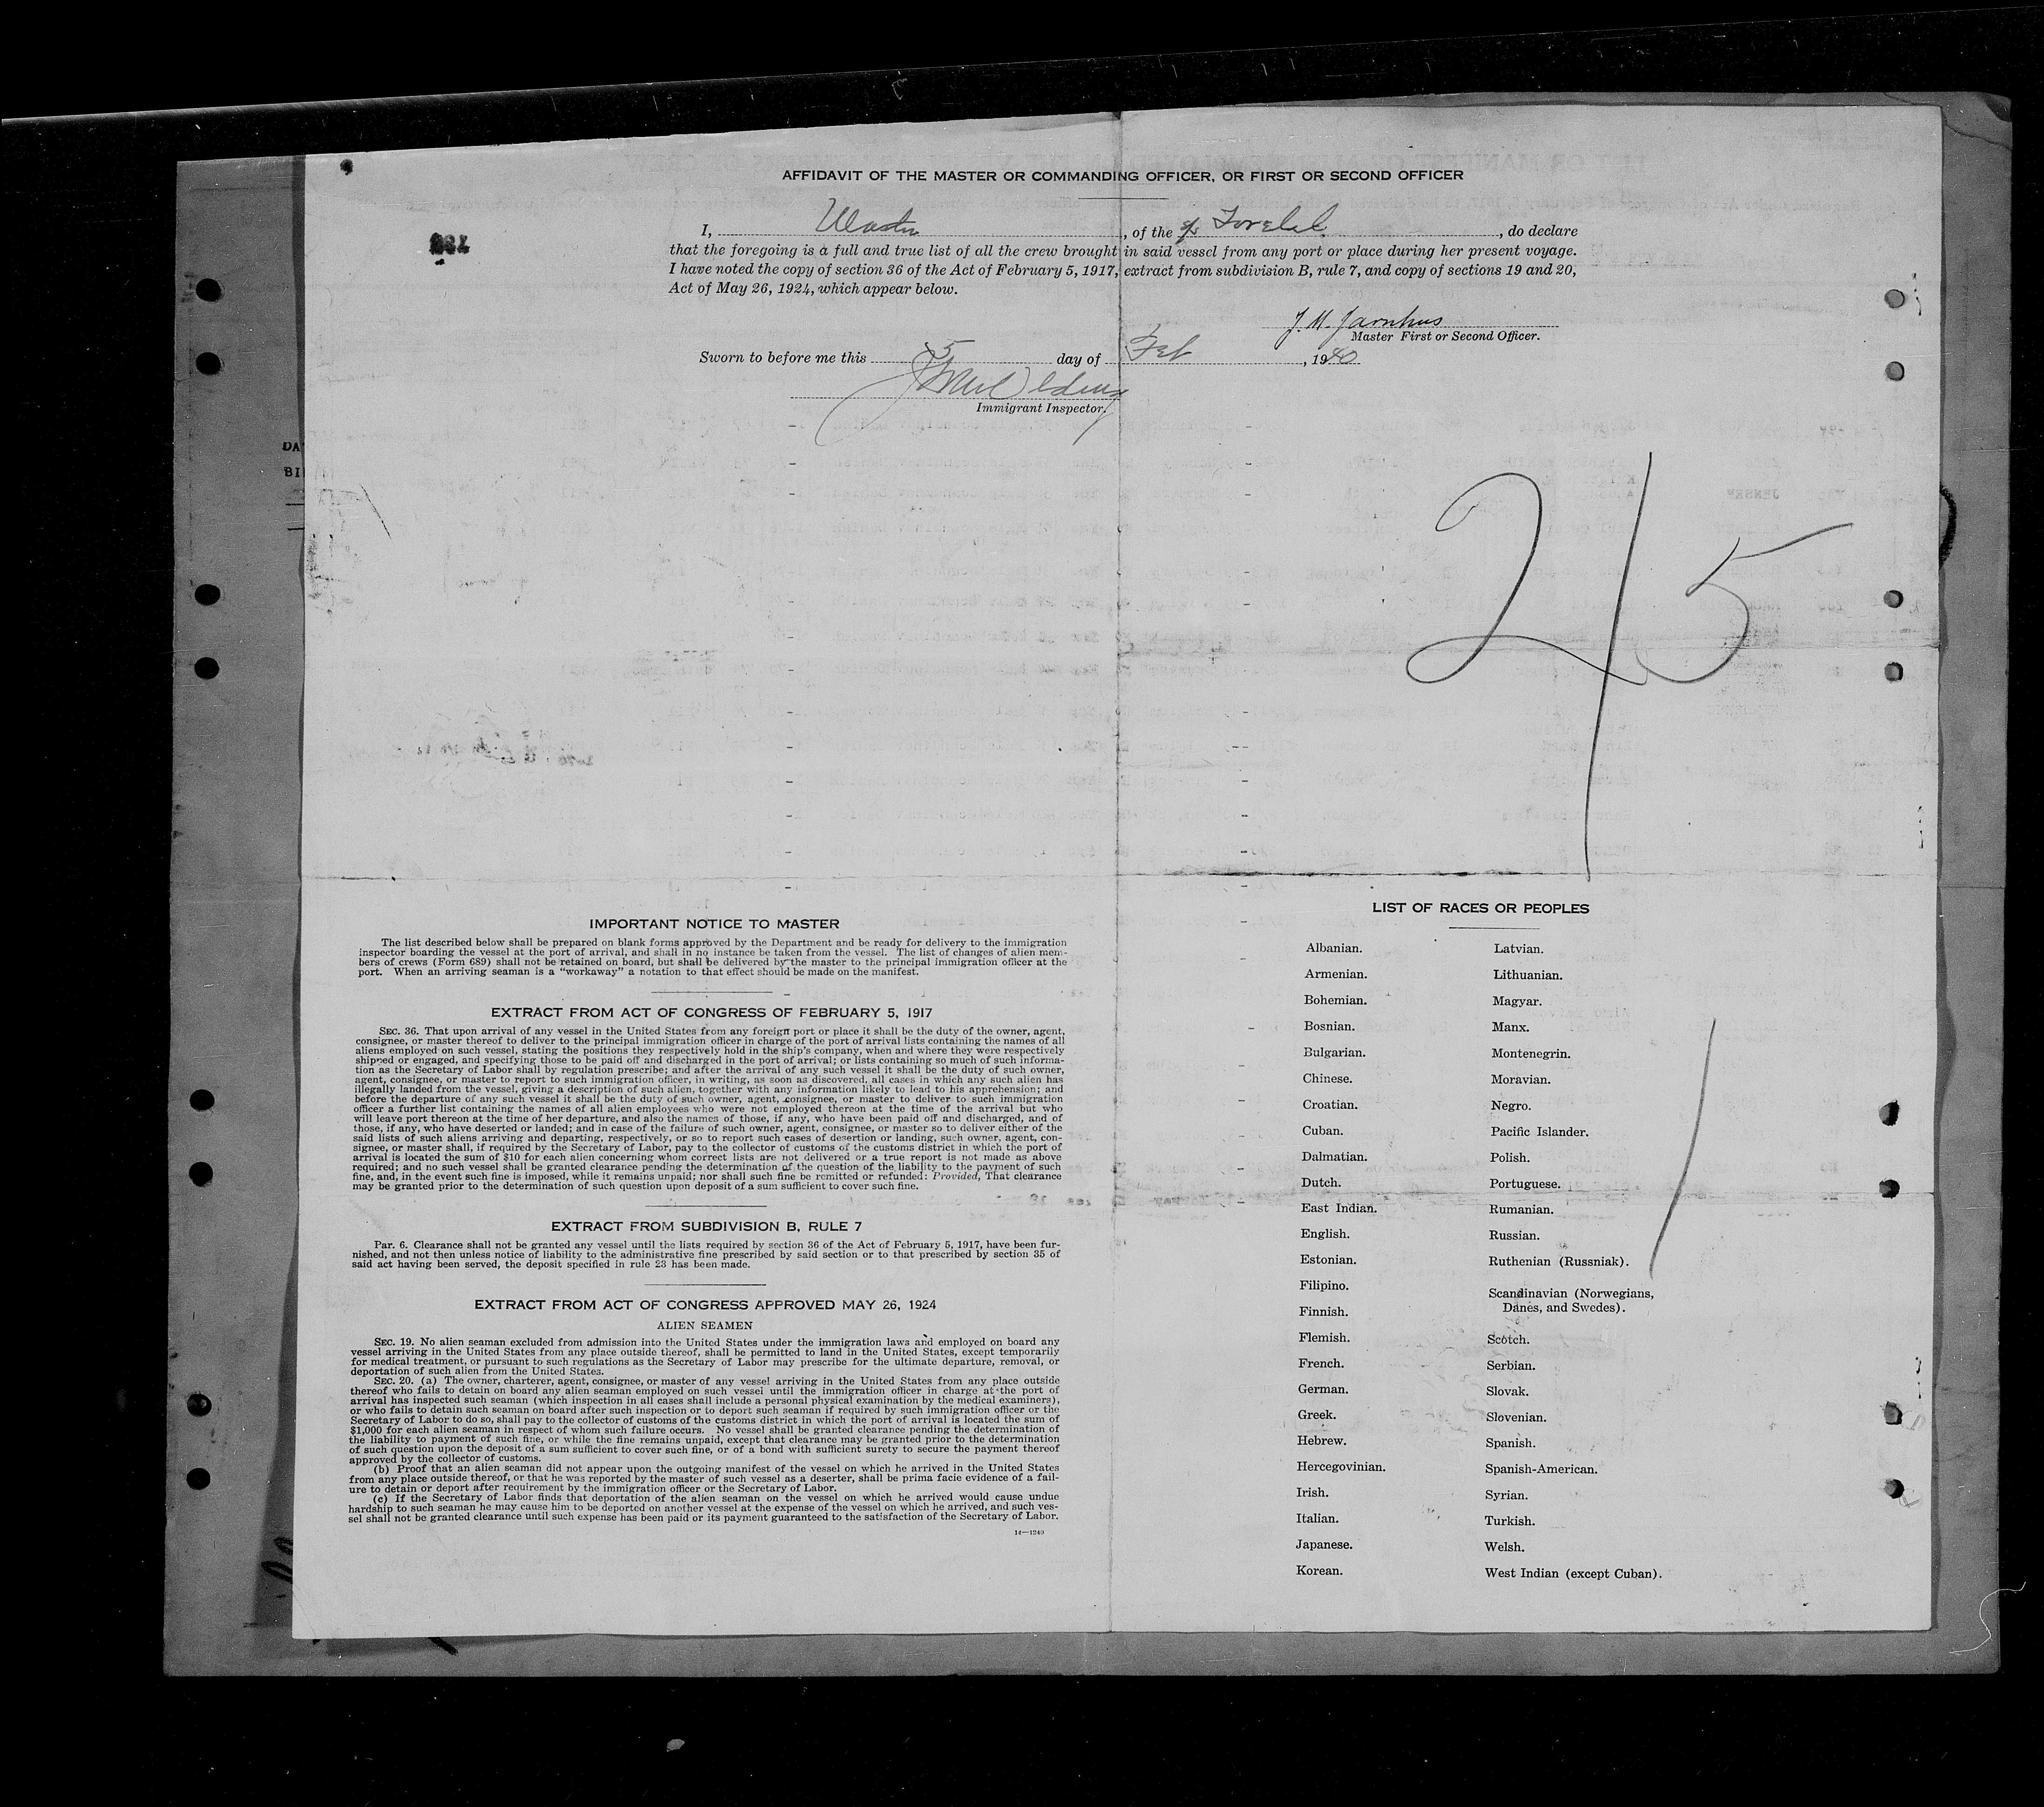 AFFIDAVIT OF THE MASTER OR COMMANDING OFFICER, OR FIRST OR SECOND OFFICER
I, Master, of the, do declare
that the foregoing is a full and true list of all the crew brought in said vessel from any port or place during her present voyage.
I have noted the copy of section 36 of the Act of February 5, 1917, extract from subdivision B, rule 7, and copy of sections 19 and 20,
Act of May 26, 1924, which appear below.
Master First or Second Officer.
Sworn to before me this 5 day of Feb, 1940
Immigrant Inspector.
DA
BI
JENSEN
2/5
IMPORTANT NOTICE TO MASTER
The list described below shall be prepared on blank forms approved by the Department and be ready for delivery to the immigration
inspector boarding the vessel at the port of arrival, and shall in no instance be taken from the vessel. The list of changes of alien mem-
bers of crews (Form 689) shall not be retained on board, but shall be delivered by the master to the principal immigration officer at the
port. When an arriving seaman is a "workaway" a notation to that effect should be made on the manifest.
EXTRACT FROM ACT OF CONGRESS OF FEBRUARY 5, 1917
SEC. 36. That upon arrival of any vessel in the United States from any foreign port or place it shall be the duty of the owner, agent,
consignee, or master thereof to deliver to the principal immigration officer in charge of the port of arrival lists containing the names of all
aliens employed on such vessel, stating the positions they respectively hold in the ship's company, when and where they were respectively
shipped or engaged, and specifying those to be paid off and discharged in the port of arrival; or lists containing so much of such informa-
tion as the Secretary of Labor shall by regulation prescribe; and after the arrival of any such vessel it shall be the duty of such owner,
agent, consignee, or master to report to such immigration officer, in writing, as soon as discovered, all cases in which any such alien has
illegally landed from the vessel, giving a description of such alien, together with any information likely to lead to his apprehension; and
before the departure of any such vessel it shall be the duty of such owner, agent, consignee, or master to deliver to such immigration
officer a further list containing the names of all alien employees who were not employed thereon at the time of the arrival but who
will leave port thereon at the time of her departure, and also the names of those, if any, who have been paid off and discharged, and of
those, if any, who have deserted or landed; and in case of the failure of such owner, agent, consignee, or master so to deliver either of the
said lists of such aliens arriving and departing, respectively, or so to report such cases of desertion or landing, such owner, agent, con-
signee, or master shall, if required by the Secretary of Labor, pay to the collector of customs of the customs district in which the port of
arrival is located the sum of $10 for each alien concerning whom correct lists are not delivered or a true report is not made as above
required; and no such vessel shall be granted clearance pending the determination of the question of the liability to the payment of such
fine, and, in the event such fine is imposed, while it remains unpaid; nor shall such fine be remitted or refunded: Provided, That clearance
may be granted prior to the determination of such question upon deposit of a sum sufficient to cover such fine.
EXTRACT FROM SUBDIVISION B, RULE 7
Par. 6. Clearance shall not be granted any vessel until the lists required by section 36 of the Act of February 5, 1917, have been fur-
nished, and not then unless notice of liability to the administrative fine prescribed by said section or to that prescribed by section 35 of
said act having been served, the deposit specified in rule 23 has been made.
EXTRACT FROM ACT OF CONGRESS APPROVED MAY 26, 1924
ALIEN SEAMEN
SEC. 19. No alien seaman excluded from admission into the United States under the immigration laws and employed on board any
vessel arriving in the United States from any place outside thereof, shall be permitted to land in the United States, except temporarily
for medical treatment, or pursuant to such regulations as the Secretary of Labor may prescribe for the ultimate departure, removal, or
deportation of such alien from the United States.
SEC. 20. (a) The owner, charterer, agent, consignee, or master of any vessel arriving in the United States from any place outside
thereof who fails to detain on board any alien seaman employed on such vessel until the immigration officer in charge at the port of
arrival has inspected such seaman (which inspection in all cases shall include a personal physical examination by the medical examiners),
or who fails to detain such seaman on board after such inspection or to deport such seaman if required by such immigration officer or the
Secretary of Labor to do so, shall pay to the collector of customs of the customs district in which the port of arrival is located the sum of
$1,000 for each alien seaman in respect of whom such failure occurs. No vessel shall be granted clearance pending the determination of
the liability to payment of such fine, or while the fine remains unpaid, except that clearance may be granted prior to the determination
of such question upon the deposit of a sum sufficient to cover such fine, or of a bond with sufficient surety to secure the payment thereof
approved by the collector of customs.
(b) Proof that an alien seaman did not appear upon the outgoing manifest of the vessel on which he arrived in the United States
from any place outside thereof, or that he was reported by the master of such vessel as a deserter, shall be prima facie evidence of a fail-
ure to detain or deport after requirement by the immigration officer or the Secretary of Labor.
(c) If the Secretary of Labor finds that deportation of the alien seaman on the vessel on which he arrived would cause undue
hardship to such seaman he may cause him to be deported on another vessel at the expense of the vessel on which he arrived, and such ves-
sel shall not be granted clearance until such expense has been paid or its payment guaranteed to the satisfaction of the Secretary of Labor.
14—1240
LIST OF RACES OR PEOPLES
Albanian.
Armenian.
Bohemian.
Bosnian.
Bulgarian.
Chinese.
Croatian.
Cuban.
Dalmatian.
Dutch.
East Indian.
English.
Estonian.
Filipino.
Finnish.
Flemish.
French.
German.
Greek.
Hebrew.
Hercegovinian.
Irish.
Italian.
Japanese.
Korean.
Latvian.
Lithuanian.
Magyar.
Manx.
Montenegrin.
Moravian.
Negro.
Pacific Islander.
Polish.
Portuguese.
Rumanian.
Russian.
Ruthenian (Russniak).
Scandinavian (Norwegians,
Danes, and Swedes).
Scotch.
Serbian.
Slovak.
Slovenian.
Spanish.
Spanish-American.
Syrian.
Turkish.
Welsh.
West Indian (except Cuban).